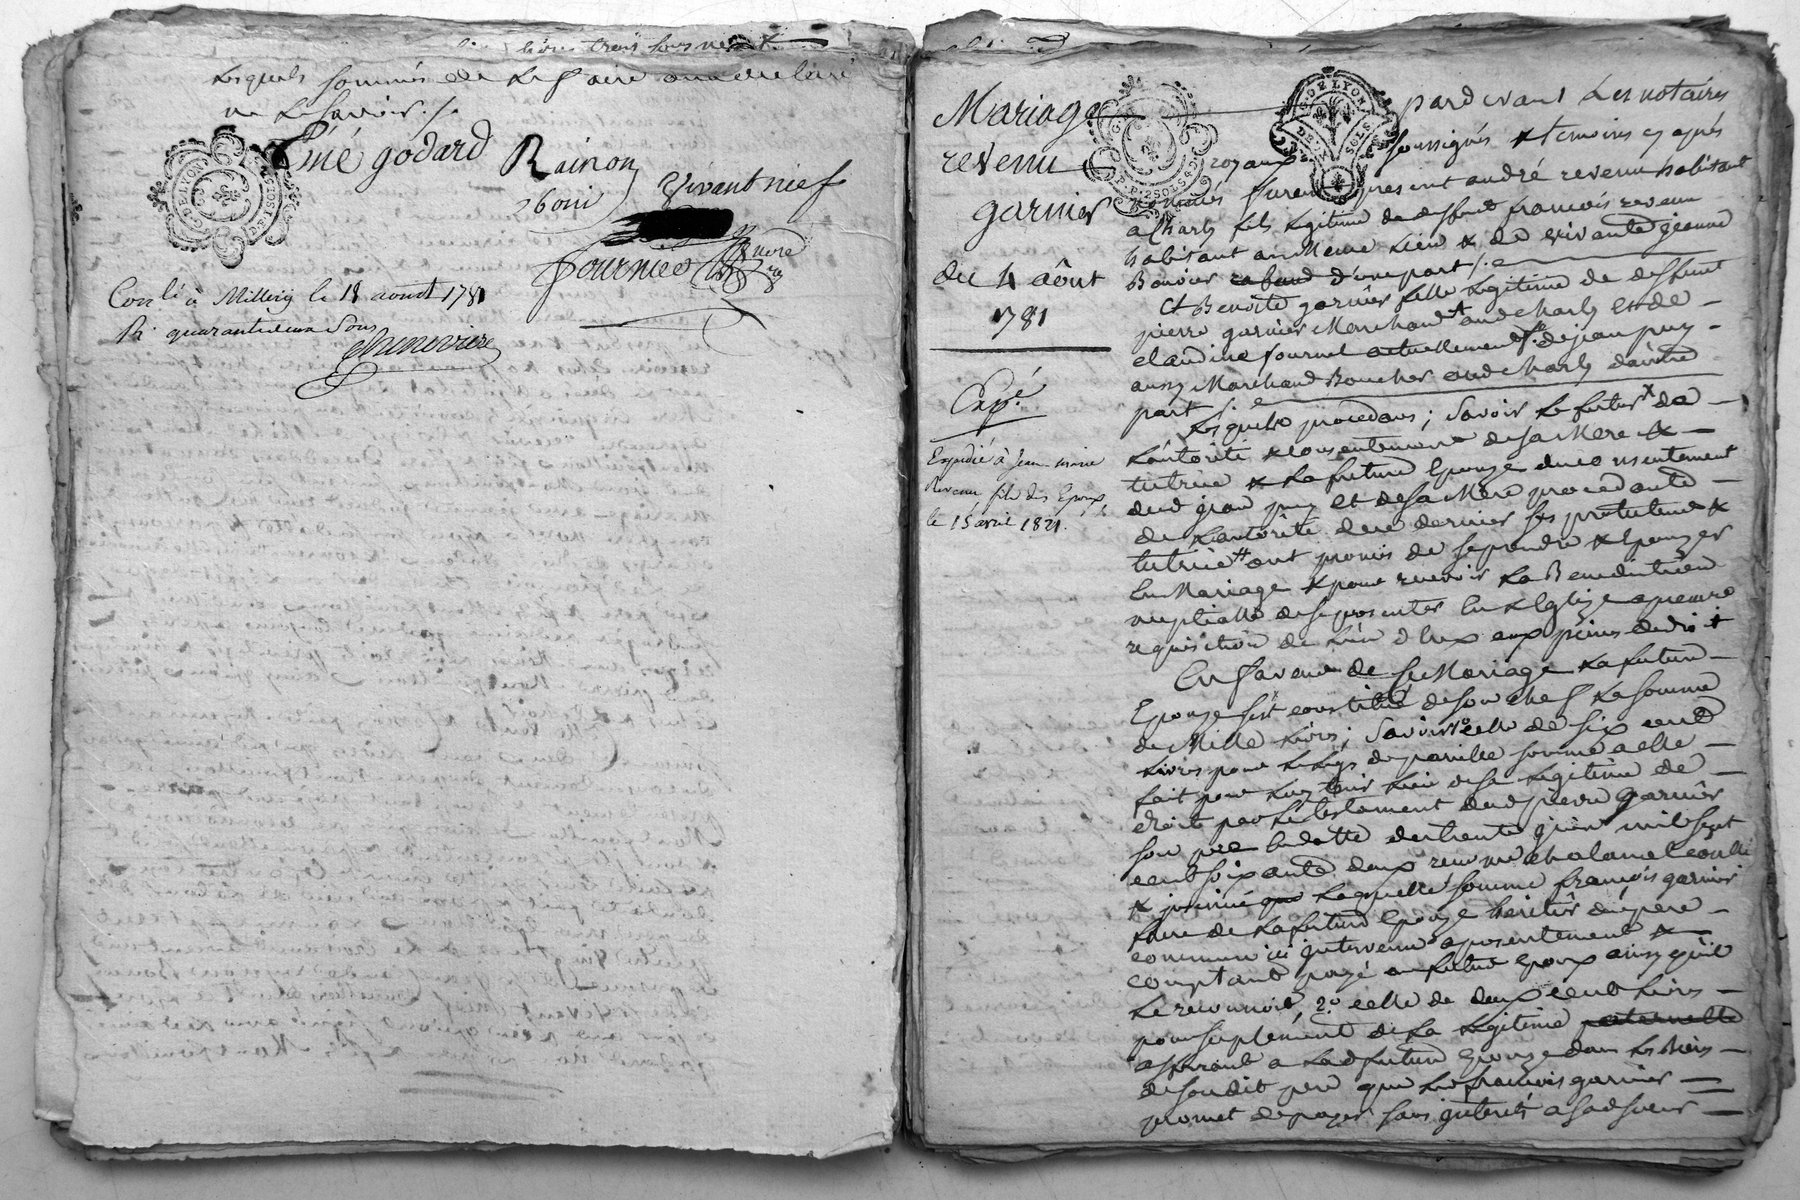 livres trois sous neuf
Lesquels sommés de Le faire ont declaré
ne Le Savoir ./.
Émé godard Rainon
Vivant nief
fournier
G. DE LYON
Conlé à Millery le 18 aoust 1781
R. quarante deux Sous
Chenevière
Mariage
revenu
garnier
du 4 aôut
1781
Expé.
Expedié à Jean-marie
Revenu fils des Epoux,
le 15 avril 1821.
G. DE LYON
pardevant Les notaires
royaux soussignés & temoins cy après
nommés furent present andré revenu habitant
a Charly fils Legitime de deffunt francois revenu
habitant au Meme Lieu & de vivante jeanne
Bonier d'une part ./.
Et Benoite garnier fille Legitime de deffunt
pierre garnier Marchand audCharly et de
claudine fournel actuellement fe. de jean puy
aussy Marchand Boucher aud Charly d'autre
part ./.
Lesquels procedans ; Savoir Le futur de
L'autorité & consentement de sa Mere &
tutrice & La future Epouze du consentement
dud jean puy et de sa Mere procedante
de L'autorité de ce dernier ses protuteur &
tutrice ont promis de se prendre & Epouzer
En Mariage & pour recevoir La Benediction
nuptialle de se presenter En L'Eglize a premiere
requisition de L'un d'Eux aux peines de droit
En faveur de ce Mariage La future
Epouze s'est constitué de son chef La somme
de Mille Livres ; Savoir 1o. celle de six cent
Livres pour Le Legs de pareille somme a elle
fait pour Luy tenir Lieu de sa Legitime de
droit par Le testament dud pierre garnier
son pere En datte du trente juin mil sept
cent soixante deux reçu me chalamel controllé
& insinué Laquelle somme francois garnier
frere de La future Epouze heritier du pere
commun ici intervenu a presentement &
comptant payé au futur Epoux ainsy qu'il
Le reconnoit, 2o. celle de deux cent Livres
pour suplement de La Legitime paternelle
afferant a Lad future Epouze dans Les Biens
de sondit pere que Led francois garnier
promet de payer sans interets a sad soeur